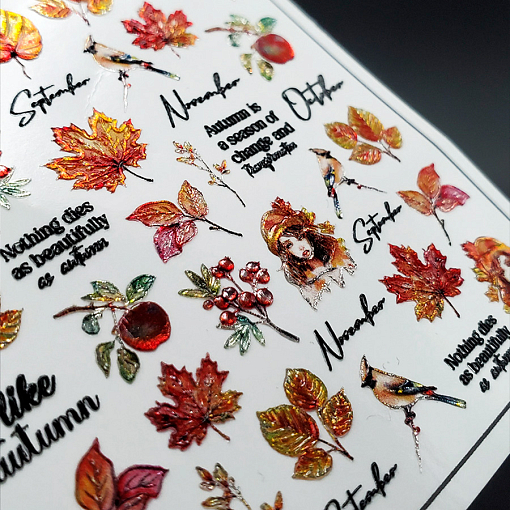 September
November
October
Autumn is
a season of
change and
Transformation
Nothing dies
as beautifully
as autumn
September
like
autumn
November
Nothing dies
as beautifully
as autumn